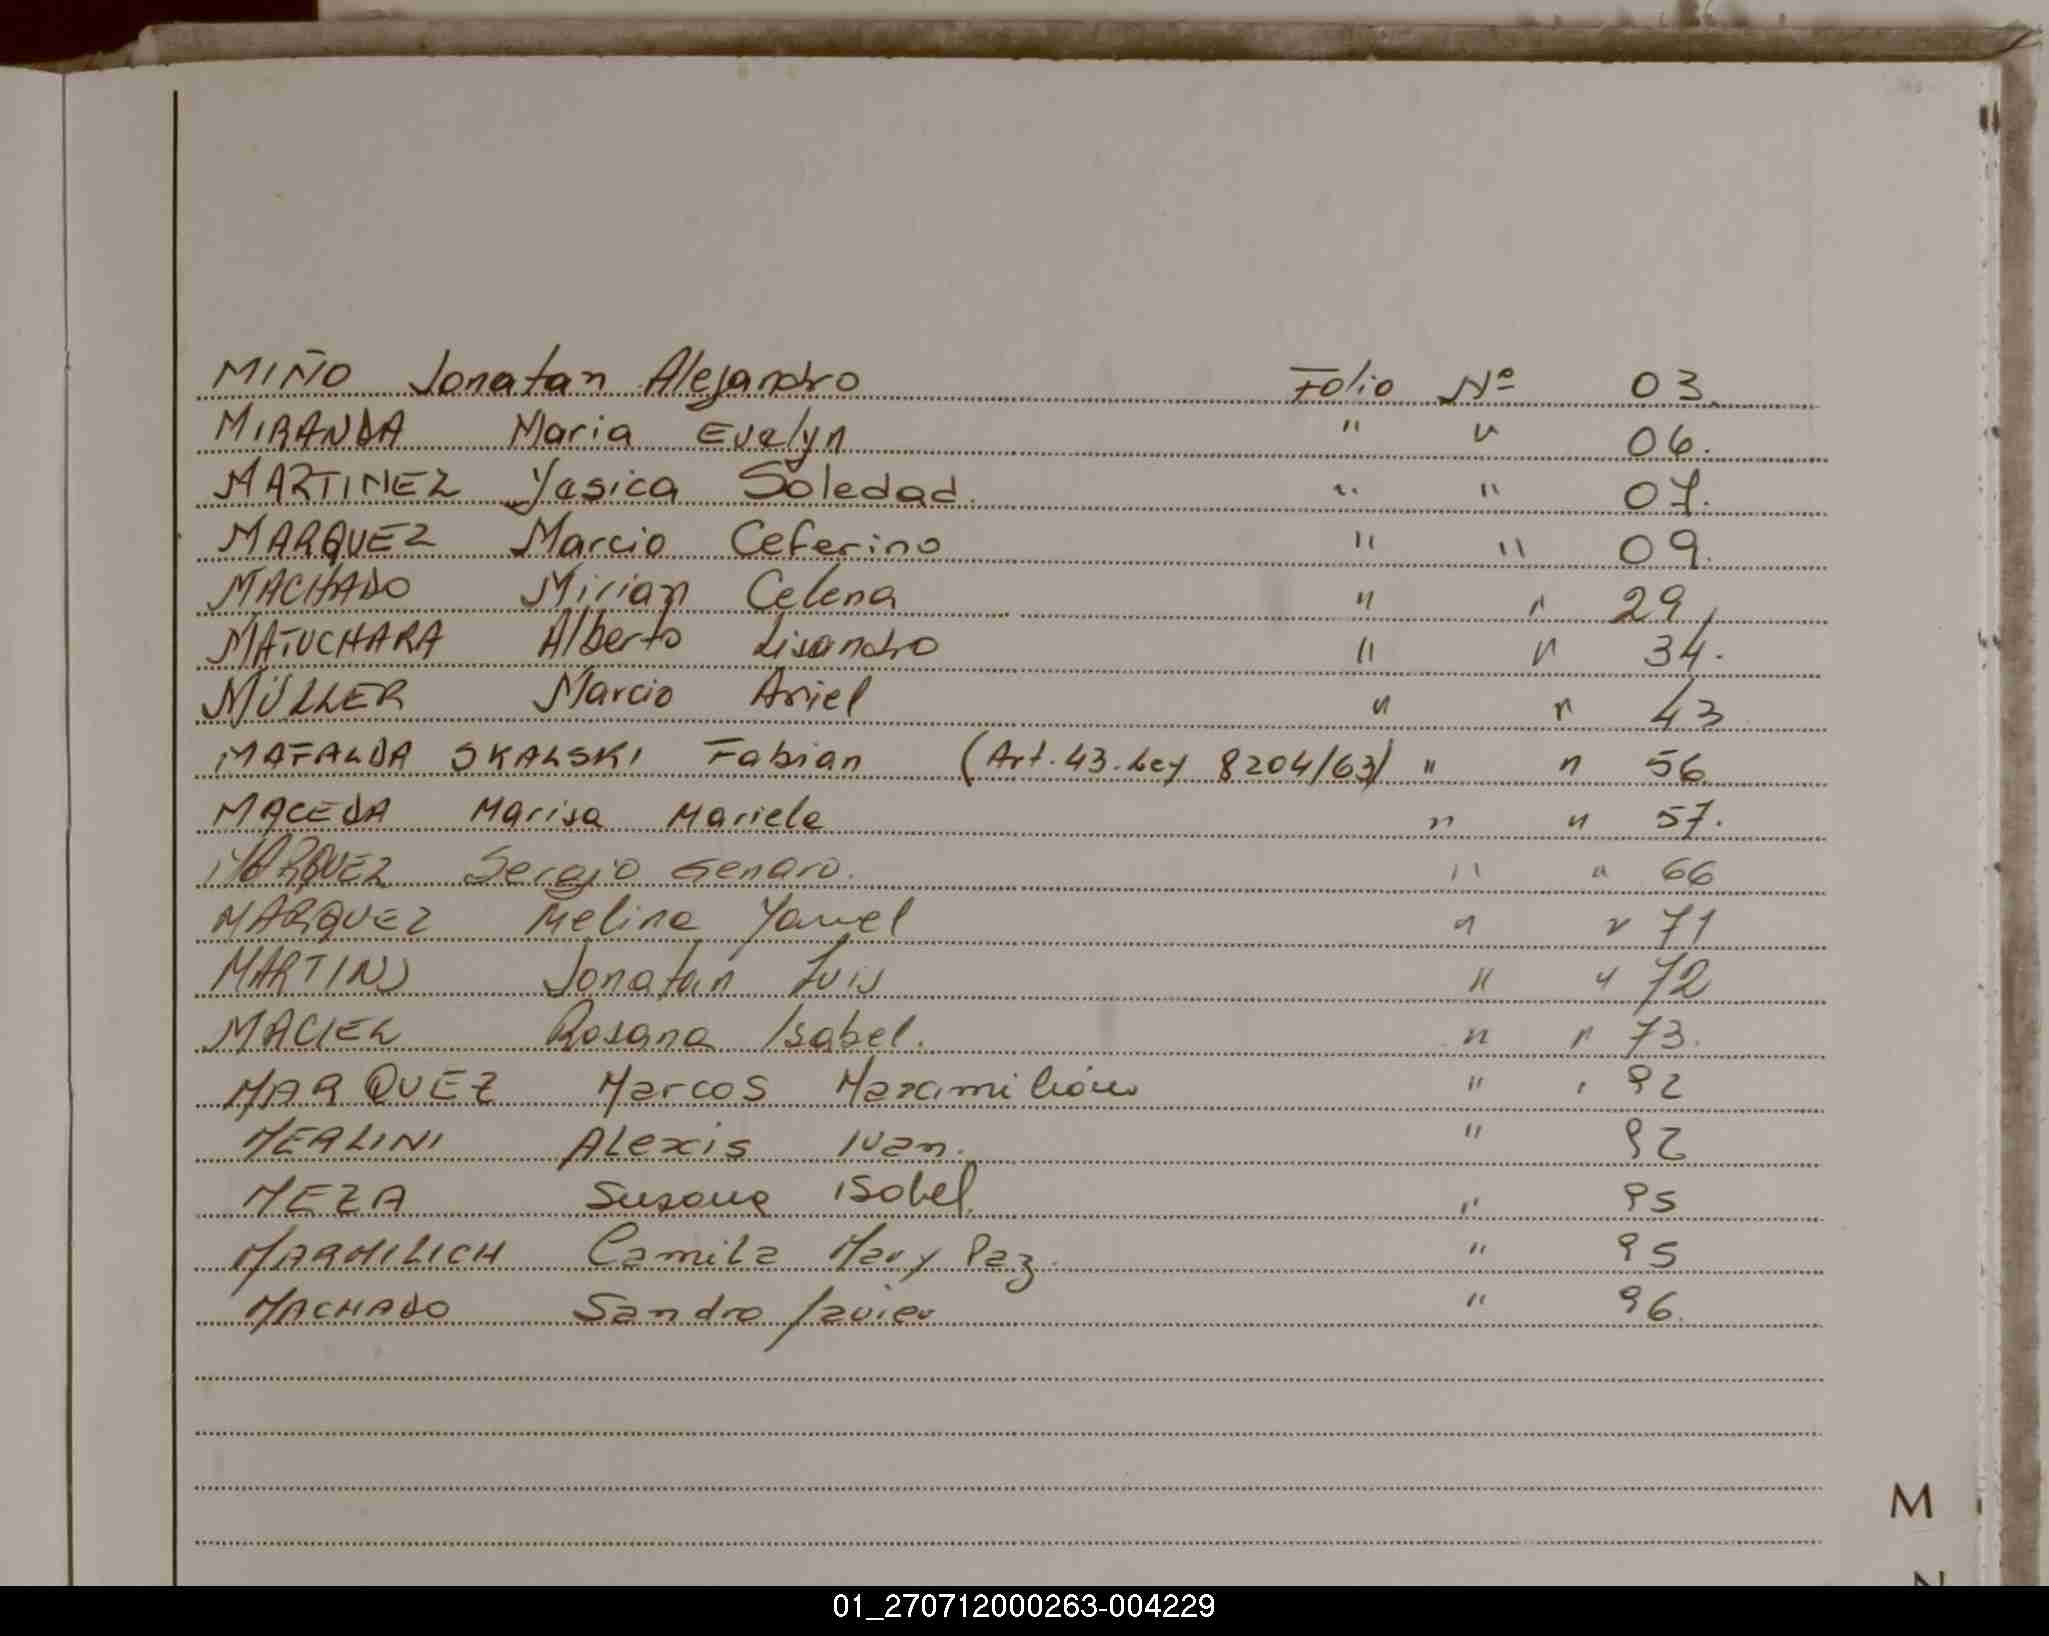 MIÑO Jonatan Alejandro Folio Nº 03.
MIRANDA Maria Evelyn " " 06.
MARTINEZ Yesica Soledad. " " 07.
MARQUEZ Marcio Ceferino " " 09.
MACHADO Mirian Celena " " 29
MATUCHARA Alberto Lisandro " " 34.
MÜLLER Marcio Ariel " " 43
MAFALDA SKALSKI Fabian (Art. 43. Ley 8204/63) " " 56
MACEDA Marisa Mariela " " 57.
MARQUEZ Sergio Genaro. " " 66
MARQUEZ Melina Yamel " " 71
MARTINS Jonatan Luis " " 72
MACIEL Rosana Isabel. " " 73.
MARQUEZ Marcos Maximilián " " 92
MERLINI Alexis Ivan. " 92
MEZA Susana Isabel. " 95
MARMILICH Camila Mary Paz. " 95
MACHADO Sandro Javier " 96.
M
N
01_270712000263-004229